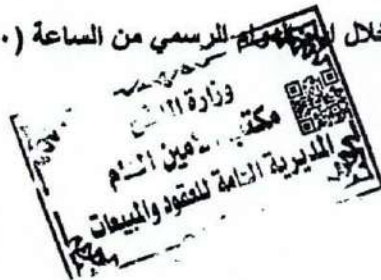 خلال الدوام الرسمي من الساعة (٠
وزارة
مكتب الأمين العام
المديرية العامة للعقود والمبيعات